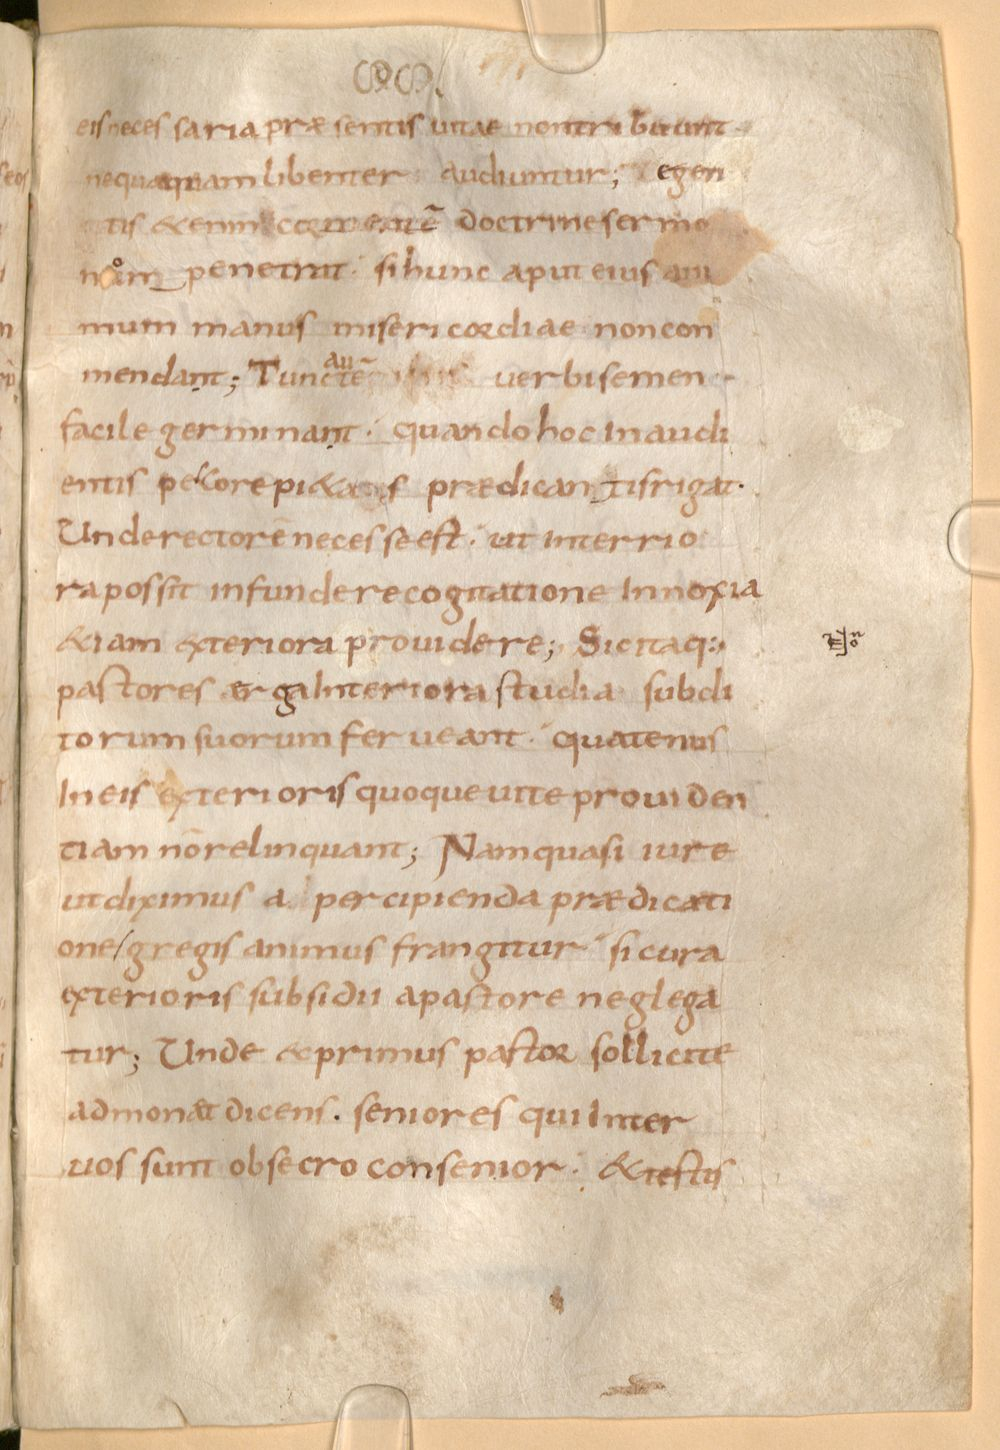 eis necessaria præsentis uitae non tribuunt
nequaquam libenter audiuntur; egen
tis &enim doctrine sermo
penetrat. si hunc aput eius ani
mum manus misericordiae non con
mendant; Tunc autē uerbi semen
facile germinant. quando hoc in audi
entis pectore pi&as prædicantis rigat.
Unde rectorē necesse est. ut interrio
ra possit infundere cogitatione Innoxia
&iam exteriora prouidere; Sic itaq:
pastores erga Interiora studia subdi
torum suorum ferueant. quatenus
In eis exterioris quoque uite prouiden
tiam nō relinquant; Nam quasi iure
ut diximus a percipienda prædicati
one/gregis animus frangitur si cura
exterioris subsidii a pastore neglega
tur; Unde & primus pastor sollicite
admonæt dicens. seniores qui Inter
uos sunt obsecro consenior. & testis